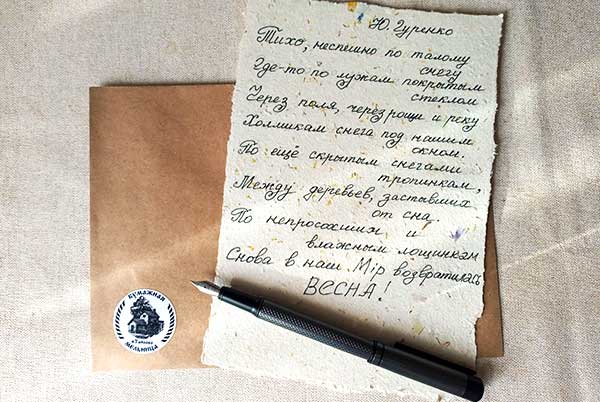 Ю. Гуренко
Тихо, неспешно по талому
снегу
Где-то по лужам покрытым
стеклом
Через поля, через рощи и реку
Холмикам снега под нашим
окном.
По ещё скрытым снегами
тропинкам,
Между деревьев, заставших
от сна.
По непросохшим и
влажным лощинкам
Снова в наш Мiр возвратилась
ВЕСНА!
БУМАЖНАЯ
МЕЛЬНИЦА